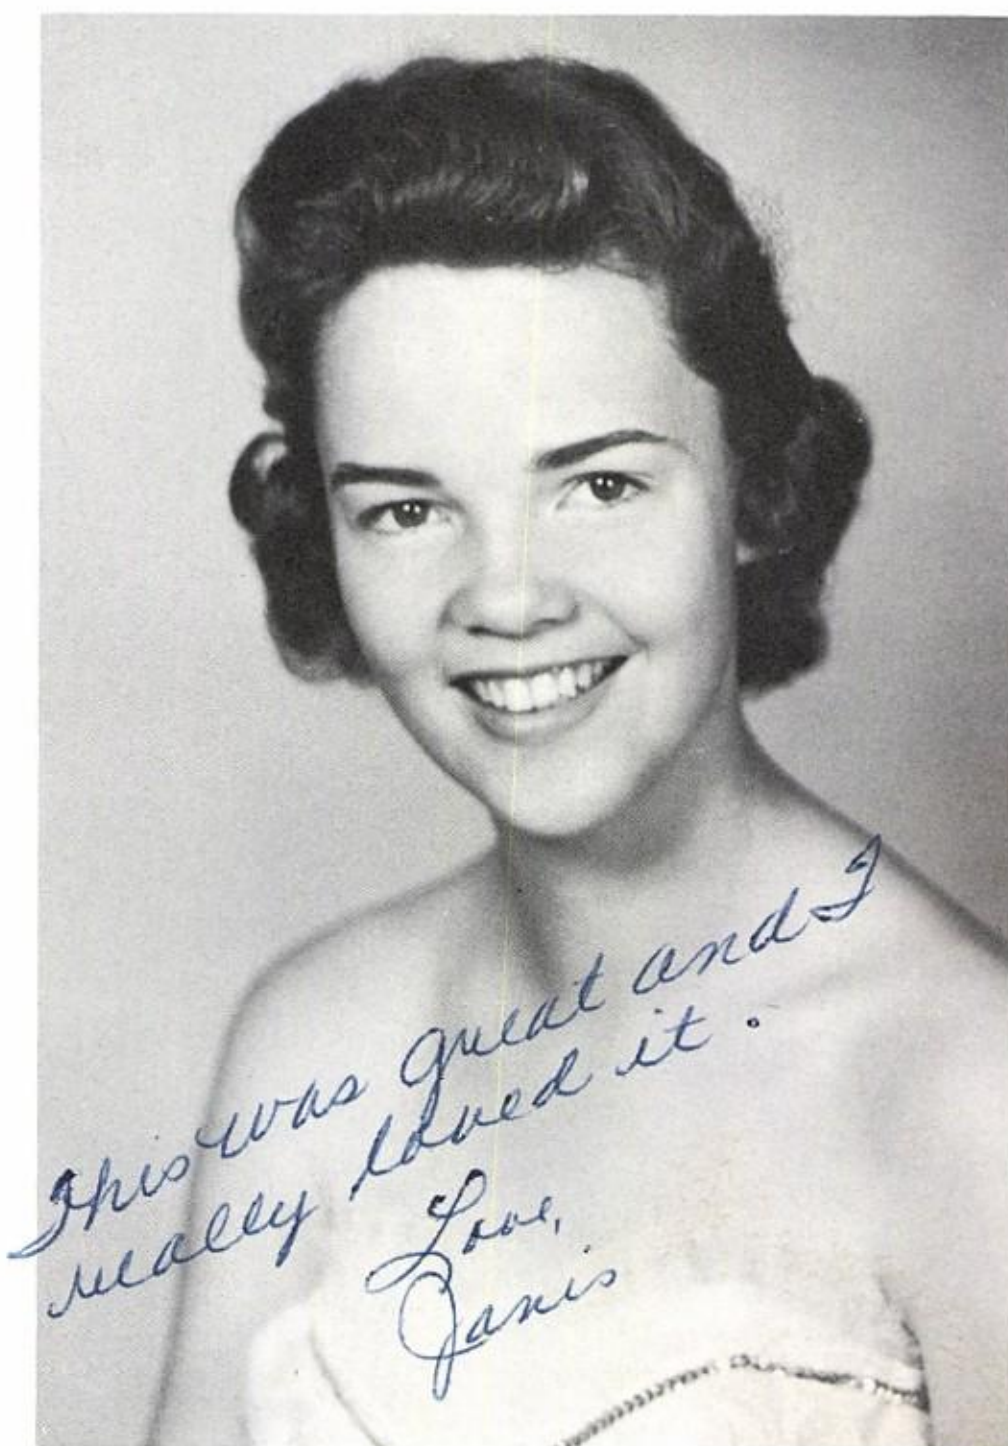 This was great and I
really loved it.
Love,
Janis